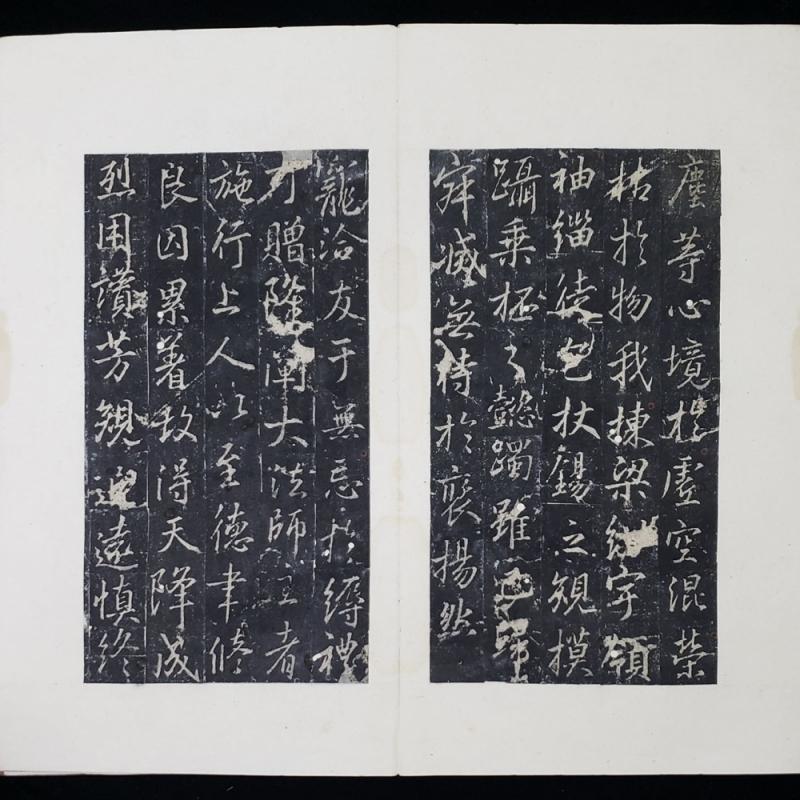 塵等心境於虛空混榮
枯於物我棟梁紺宇領
袖緇徒包杖錫之規模
躡乘杯之懿躅雖已歸
寂滅無待於褒揚然
寵洽友于無忘於縟禮
可贈隆闡大法師主者
施行上人以至德聿修
良因累著故得天降成
烈用讚芳規追遠慎終